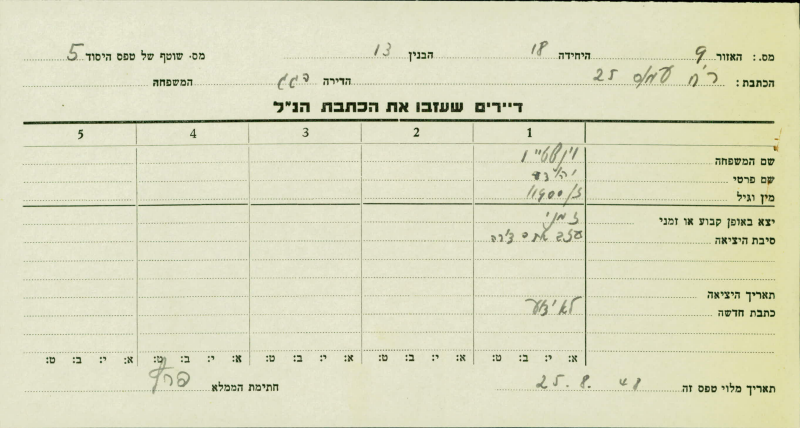 מס.: האזור 9 היחידה 18 הבנין 13 מס. שוטף של טפס היסוד 5
הכתבת: רח' עמוס 25 הדירה בגג המשפחה
דיירים שעזבו את הכתבת הנ״ל
1 2 3 4 5
שם המשפחה וינשטיין
שם פרטי יהודה
מין וגיל
יצא באופן קבוע או זמני זמני
סיבת היציאה עזב את הדירה
תאריך היציאה
כתבת חדשה לא ידוע
א: י: ב: ט: א: י: ב: ט: א: י: ב: ט: א: י: ב: ט: א: י: ב: ט:
תאריך מלוי טפס זה 25.8.48 חתימת הממלא